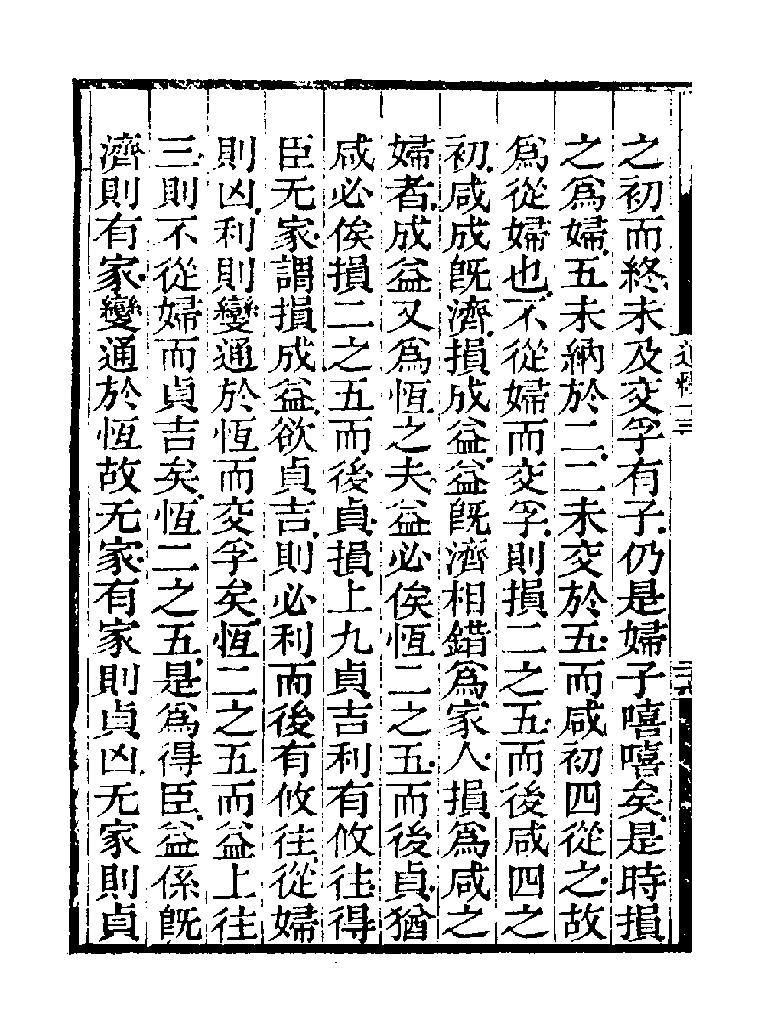 之初而終未及交孚有子仍是婦子嘻嘻矣是時損
之爲婦五未納於二二未交於五而咸初四從之故
爲從婦也不從婦而交孚則損二之五而後咸四之
初咸成旣濟損成益益旣濟相錯爲家人損爲咸之
婦者成益又爲恆之夫益必俟恆二之五而後貞猶
咸必俟損二之五而後貞損上九貞吉利有攸往得
臣无家謂損成益欲貞吉則必利而後有攸往從婦
則凶利則變通於恆而交孚矣恆二之五而益上往
三則不從婦而貞吉矣恆二之五是爲得臣益係旣
濟則有家變通於恆故无家有家則貞凶无家則貞